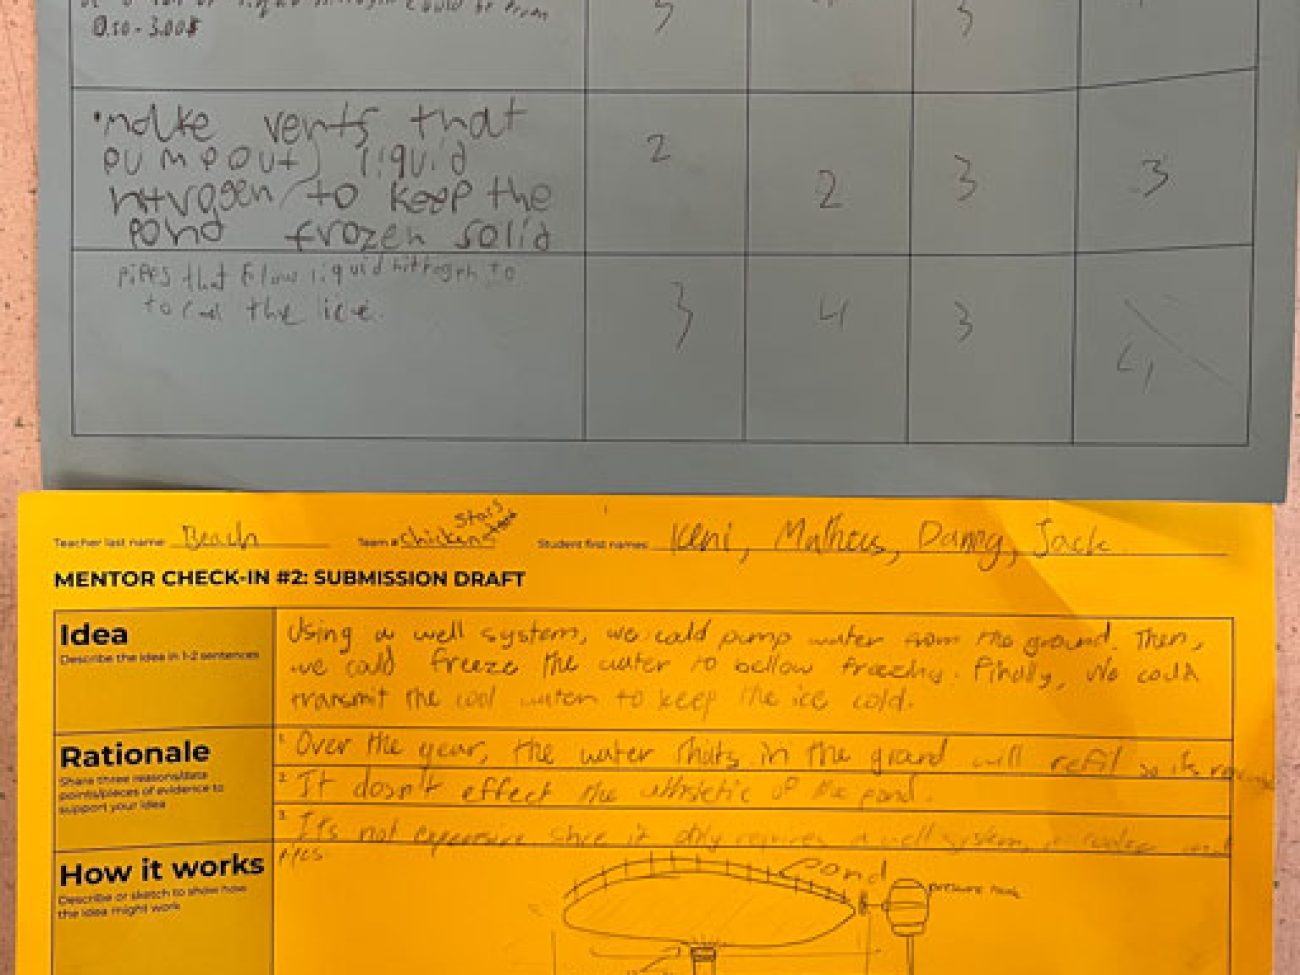 liquid nitrogen could be from
0.50 - 3.00$
5
3
•make vents that
pump out liquid
nitrogen to keep the
pond frozen solid
2
2
3
3
Pipes that flow liquid nitrogen to
to cool the ice.
3
4
3
4
Teacher last name: Beach
Team #: Chicken Stars
Student first names: Keni, Matheus, Danny, Jack
MENTOR CHECK-IN #2: SUBMISSION DRAFT
Idea
Describe the idea in 1-2 sentences
Using a well system, we cold pump water from the ground. Then,
we could freeze the water to bellow freezing. Finally, We could
transmit the cool water to keep the ice cold.
Rationale
Share three reasons/data
points/pieces of evidence to
support your idea
1. Over the year, the water thats in the ground will refil so its
2. It dosn't effect the of the pond.
3. It's not expensive since it only requires a well system, a cooler and
pipes
How it works
Describe or sketch to show how
the idea might work
pond
pressure tank